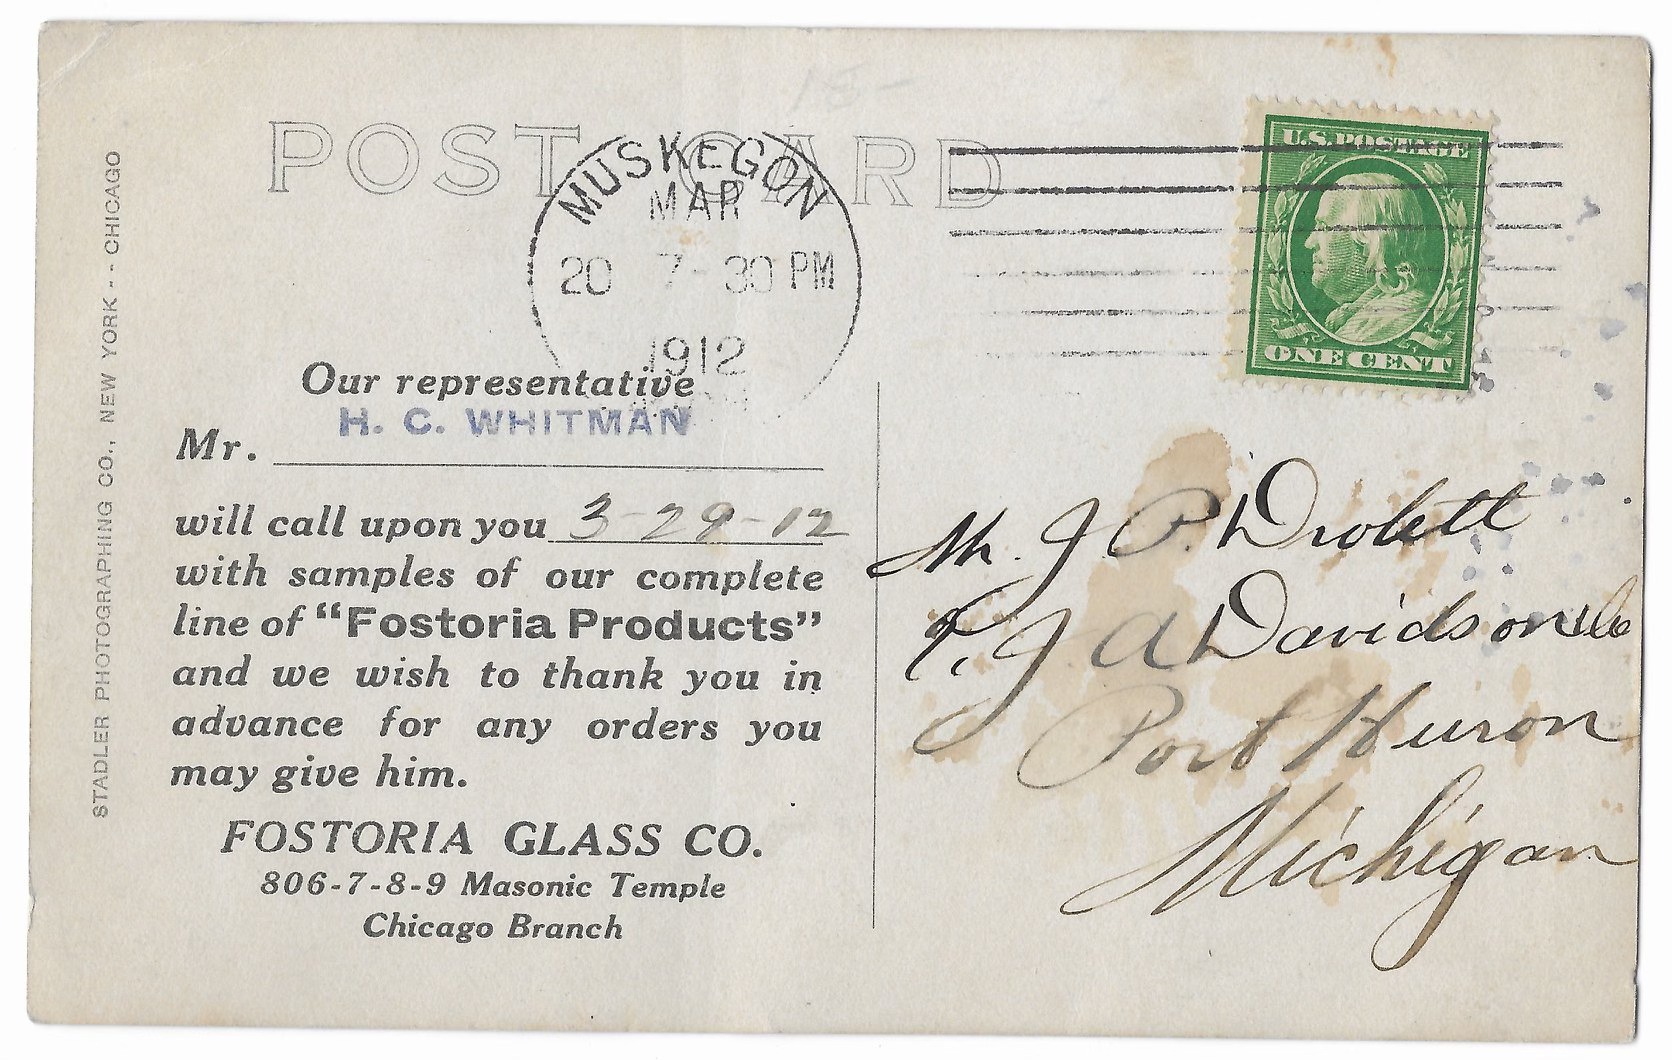 15-
POST CARD
MUSKEGON
MAR
20 7-30 PM
1912
U.S. POSTAGE
ONE CENT
STADLER PHOTOGRAPHING CO., NEW YORK -- CHICAGO
Our representative
H. C. WHITMAN
Mr.
will call upon you 3-29-12
with samples of our complete
line of "Fostoria Products"
and we wish to thank you in
advance for any orders you
may give him.
FOSTORIA GLASS CO.
806-7-8-9 Masonic Temple
Chicago Branch
Mr. J P. Drolett
J A Davidson
Port Huron
Michigan